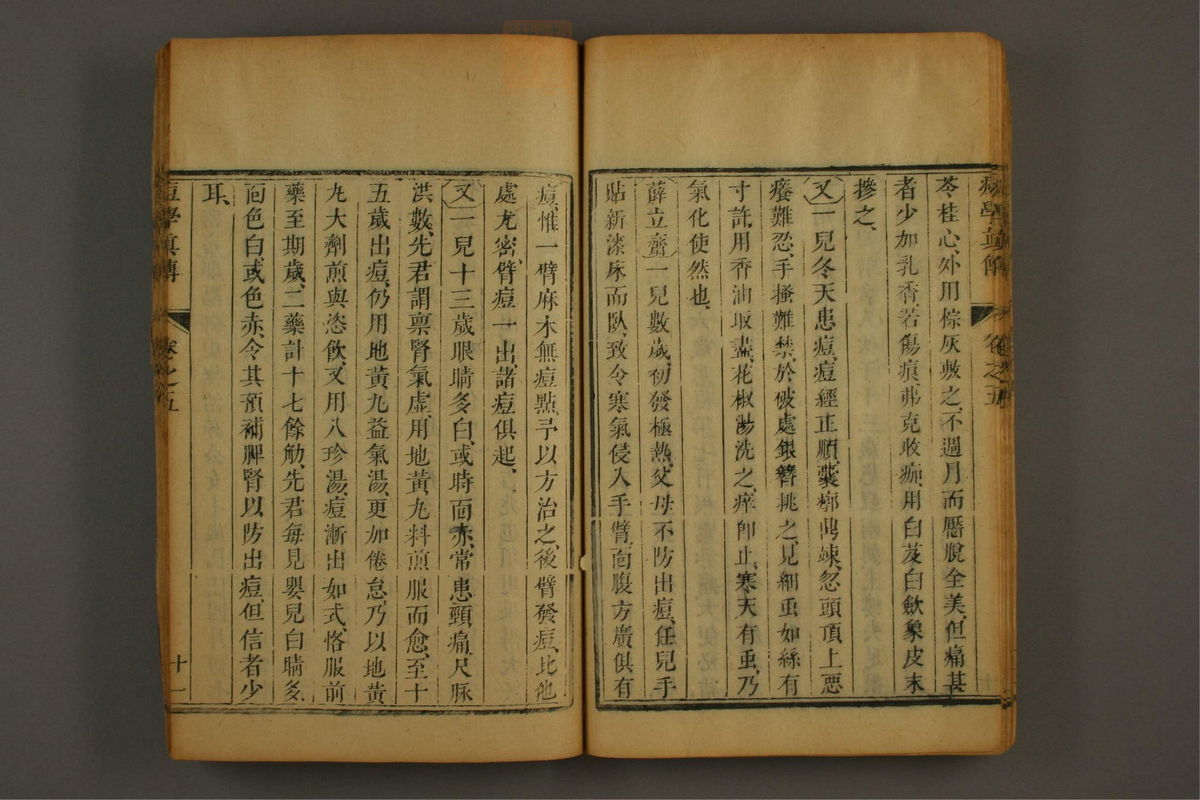 痘學眞傳 卷之五
苓桂心、外用棕灰敷之、不過月而靨脫全美、但痛甚
者少加乳香若傷痕弗克收痂、用白芨白斂象皮末
摻之、
又一兒冬天患痘、痘經正順、囊廓鼎竦、忽頭頂上惡
癢難忍、手搔難禁、於破處銀簪挑之、見細虫如絲有
寸許、用香油取盡、花椒湯洗之、痒卽止、寒天有虫、乃
氣化使然也、
薛立齋一兒數歲、初發極熱、父母不防出痘、任兒手
貼新漆床而臥、致令寒氣侵入手臂、面腹方廣、俱有
痘、惟一臂麻木無痘點、予以方治之、後臂發痘、比他
處尤密、臂痘一出、諸痘俱起、
又一兒十三歲眼睛多白、或時面赤、常患頸痛、尺脉
洪數、先君謂稟腎氣虛、用地黃丸料煎服而愈、至十
五歲出痘、仍用地黃丸益氣湯、更加倦怠、乃以地黃
九大劑煎與恣飮、又用八珍湯、痘漸出如式、恪服前
藥至期歲、二藥計十七餘觔、先君每見嬰兒白睛多、
面色白或色赤、令其預補脾腎以防出痘、但信者少
耳、
痘學眞傳 卷之五 十一